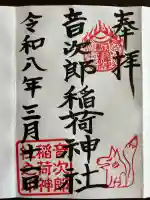 奉拝
音次郎稲荷神社
令和八年三月廿二日
音次郎
稲荷神